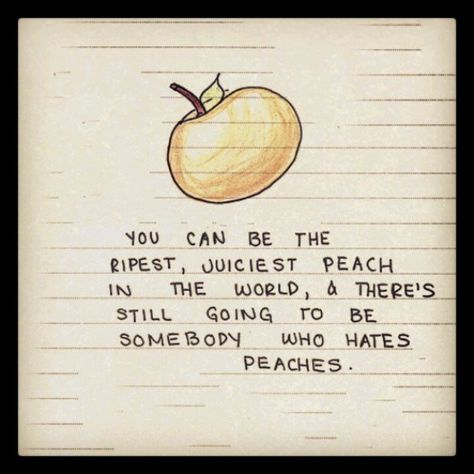 YOU CAN BE THE
RIPEST, JUICIEST PEACH
IN THE WORLD, & THERE'S
STILL GOING TO BE
SOMEBODY WHO HATES
PEACHES.